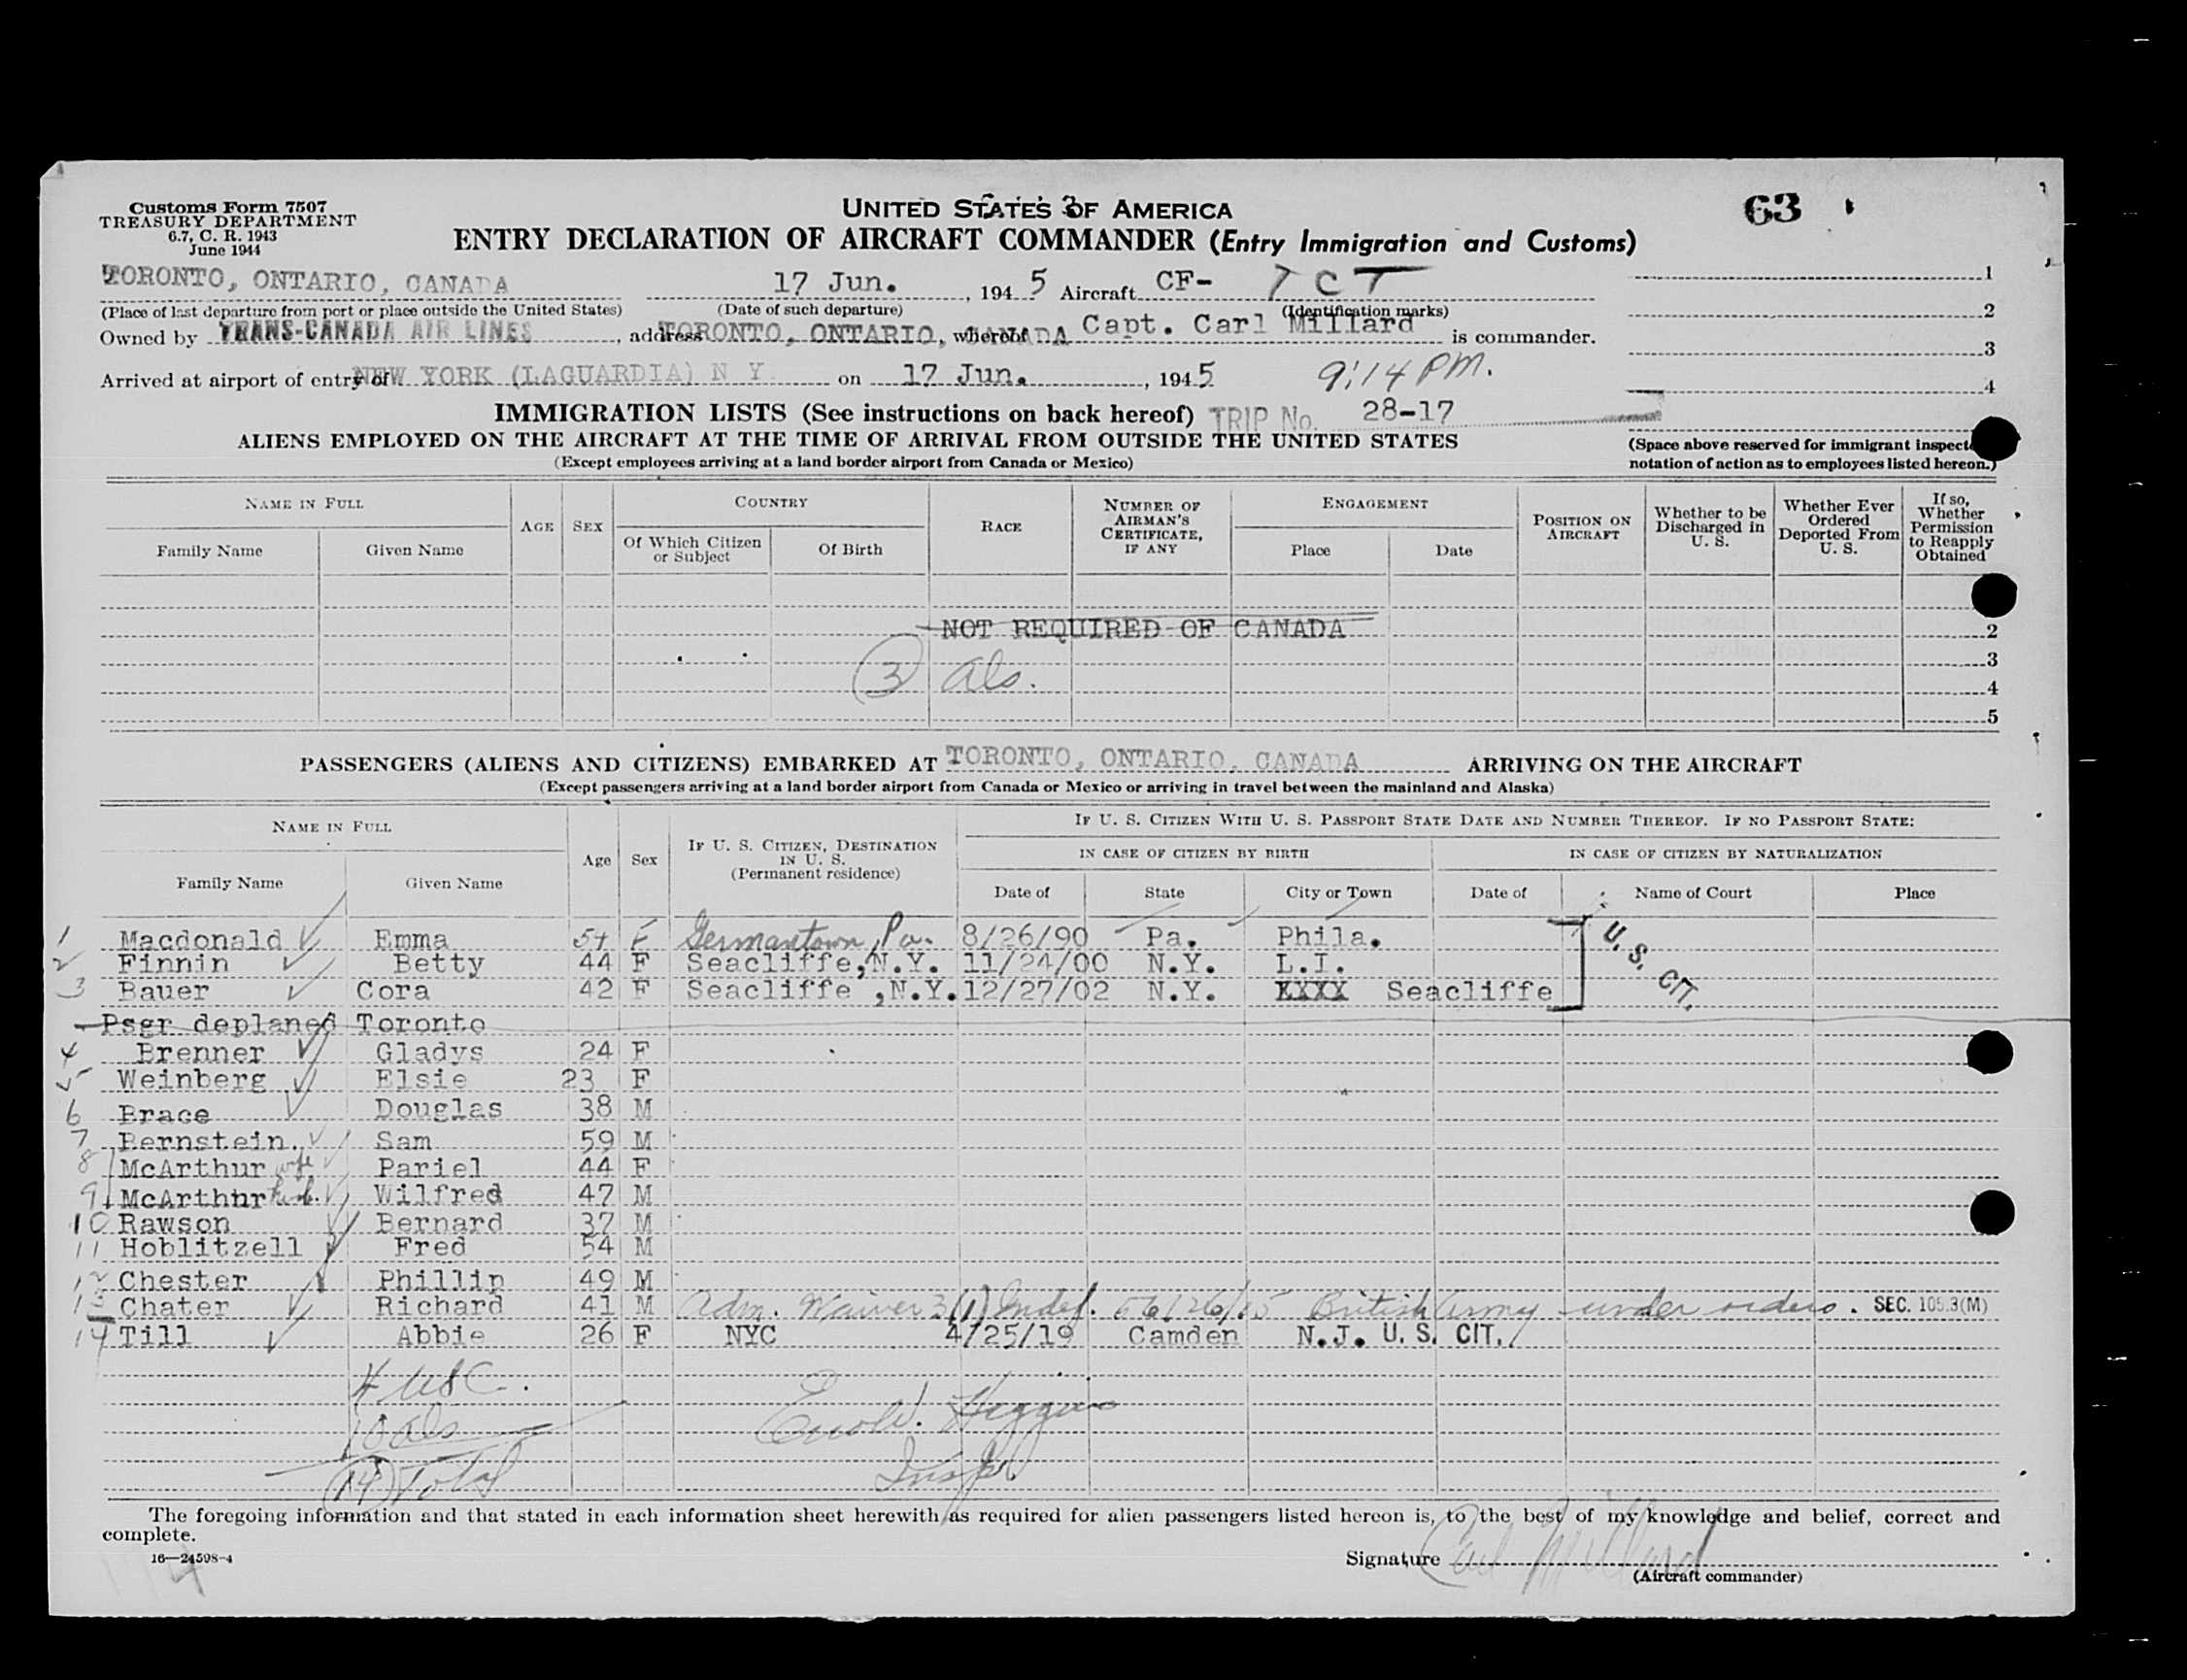 Customs Form 7507
TREASURY DEPARTMENT
6.7, C. R. 1943
June 1944
UNITED STATES OF AMERICA
63
ENTRY DECLARATION OF AIRCRAFT COMMANDER (Entry Immigration and Customs)
TORONTO, ONTARIO, CANADA 17 Jun., 1945 Aircraft CF- TCT 1
(Place of last departure from port or place outside the United States) (Date of such departure) (Identification marks) 2
Owned by TRANS-CANADA AIR LINES, address TORONTO, ONTARIO, CANADA, whereof Capt. Carl Millard is commander. 3
Arrived at airport of entry of NEW YORK (LAGUARDIA) N Y on 17 Jun., 1945 9:14 PM. 4
IMMIGRATION LISTS (See instructions on back hereof) TRIP No. 28-17
ALIENS EMPLOYED ON THE AIRCRAFT AT THE TIME OF ARRIVAL FROM OUTSIDE THE UNITED STATES
(Except employees arriving at a land border airport from Canada or Mexico)
(Space above reserved for immigrant inspect
notation of action as to employees listed hereon.)
NAME IN FULL
Family Name Given Name
AGE SEX
COUNTRY
Of Which Citizen or Subject Of Birth
RACE
NUMBER OF AIRMAN'S CERTIFICATE, IF ANY
ENGAGEMENT
Place Date
POSITION ON AIRCRAFT
Whether to be Discharged in U. S.
Whether Ever Ordered Deported From U. S.
If so, Whether Permission to Reapply Obtained
NOT REQUIRED OF CANADA 2
3
(3) als. 4
5
PASSENGERS (ALIENS AND CITIZENS) EMBARKED AT TORONTO, ONTARIO, CANADA ARRIVING ON THE AIRCRAFT
(Except passengers arriving at a land border airport from Canada or Mexico or arriving in travel between the mainland and Alaska)
NAME IN FULL
Family Name Given Name
Age Sex
IF U. S. CITIZEN, DESTINATION IN U. S. (Permanent residence)
IF U. S. CITIZEN WITH U. S. PASSPORT STATE DATE AND NUMBER THEREOF. IF NO PASSPORT STATE:
IN CASE OF CITIZEN BY BIRTH IN CASE OF CITIZEN BY NATURALIZATION
Date of State City or Town Date of Name of Court Place
1 Macdonald Emma 54 F Germantown, Pa. 8/26/90 Pa. Phila.
2 Finnin Betty 44 F Seacliffe, N.Y. 11/24/00 N.Y. L.I.
3 Bauer Cora 42 F Seacliffe, N.Y. 12/27/02 N.Y. XXXX Seacliffe
U. S. CIT.
Psgr deplaned Toronto
4 Brenner Gladys 24 F
5 Weinberg Elsie 23 F
6 Brace Douglas 38 M
7 Bernstein. Sam 59 M
8 McArthur wife Pariel 44 F
9 McArthur husb. Wilfred 47 M
10 Rawson Bernard 37 M
11 Hoblitzell Fred 54 M
12 Chester Phillip 49 M
13 Chater Richard 41 M Adm. Waiver 3(1) Indef. British Army under orders. SEC. 105.3(M)
14 Till Abbie 26 F NYC 4/25/19 Camden N.J. U. S. CIT.
4 USC.
10 als
(14) Total
Higgins
Insp.
The foregoing information and that stated in each information sheet herewith as required for alien passengers listed hereon is, to the best of my knowledge and belief, correct and
complete.
16—24598-4
Signature Carl Millard
(Aircraft commander)